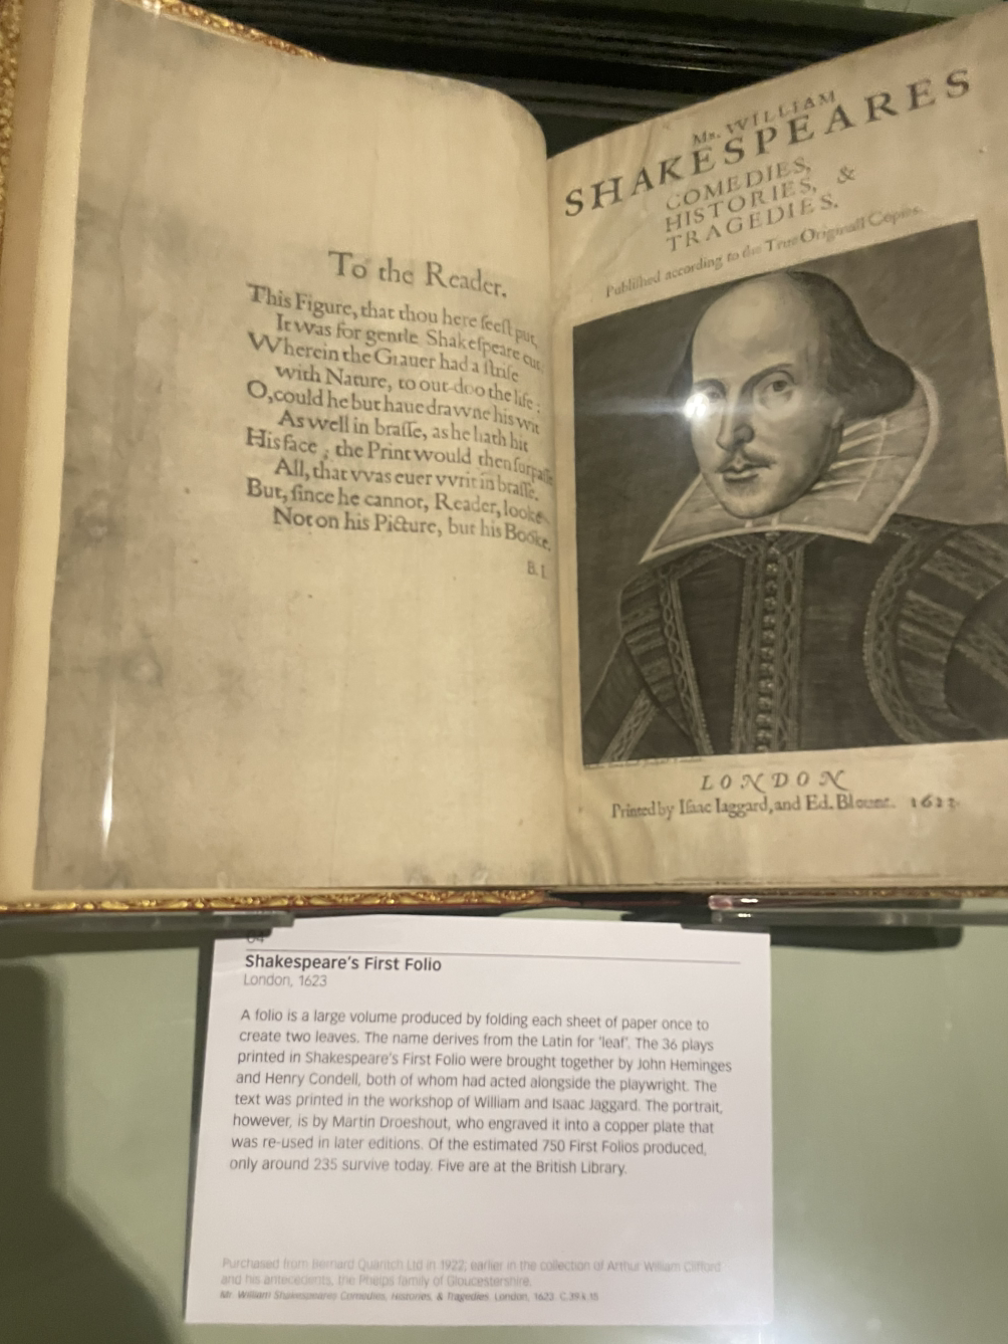 To the Reader.
This Figure, that thou here seest put,
It was for gentle Shakespeare cut:
Wherein the Grauer had a strife
with Nature, to out-doo the life :
O, could he but haue drawne his wit
As well in brasse, as he hath hit
His face ; the Print would then surpasse
All, that vvas euer vvrit in brasse.
But, since he cannot, Reader, looke
Not on his Picture, but his Booke.
B. I.
Mr. WILLIAM
SHAKESPEARES
COMEDIES,
HISTORIES, &
TRAGEDIES.
Published according to the True Originall Copies.
LONDON
Printed by Isaac Iaggard, and Ed. Blount. 1623.
64
Shakespeare's First Folio
London, 1623
A folio is a large volume produced by folding each sheet of paper once to
create two leaves. The name derives from the Latin for 'leaf'. The 36 plays
printed in Shakespeare's First Folio were brought together by John Heminges
and Henry Condell, both of whom had acted alongside the playwright. The
text was printed in the workshop of William and Isaac Jaggard. The portrait,
however, is by Martin Droeshout, who engraved it into a copper plate that
was re-used in later editions. Of the estimated 750 First Folios produced,
only around 235 survive today. Five are at the British Library.
Purchased from Bernard Quaritch Ltd in 1922; earlier in the collection of Arthur William Clifford
and his antecedents, the Phelps family of Gloucestershire.
Mr. William Shakespeares Comedies, Histories, & Tragedies. London, 1623. C.39.k.15